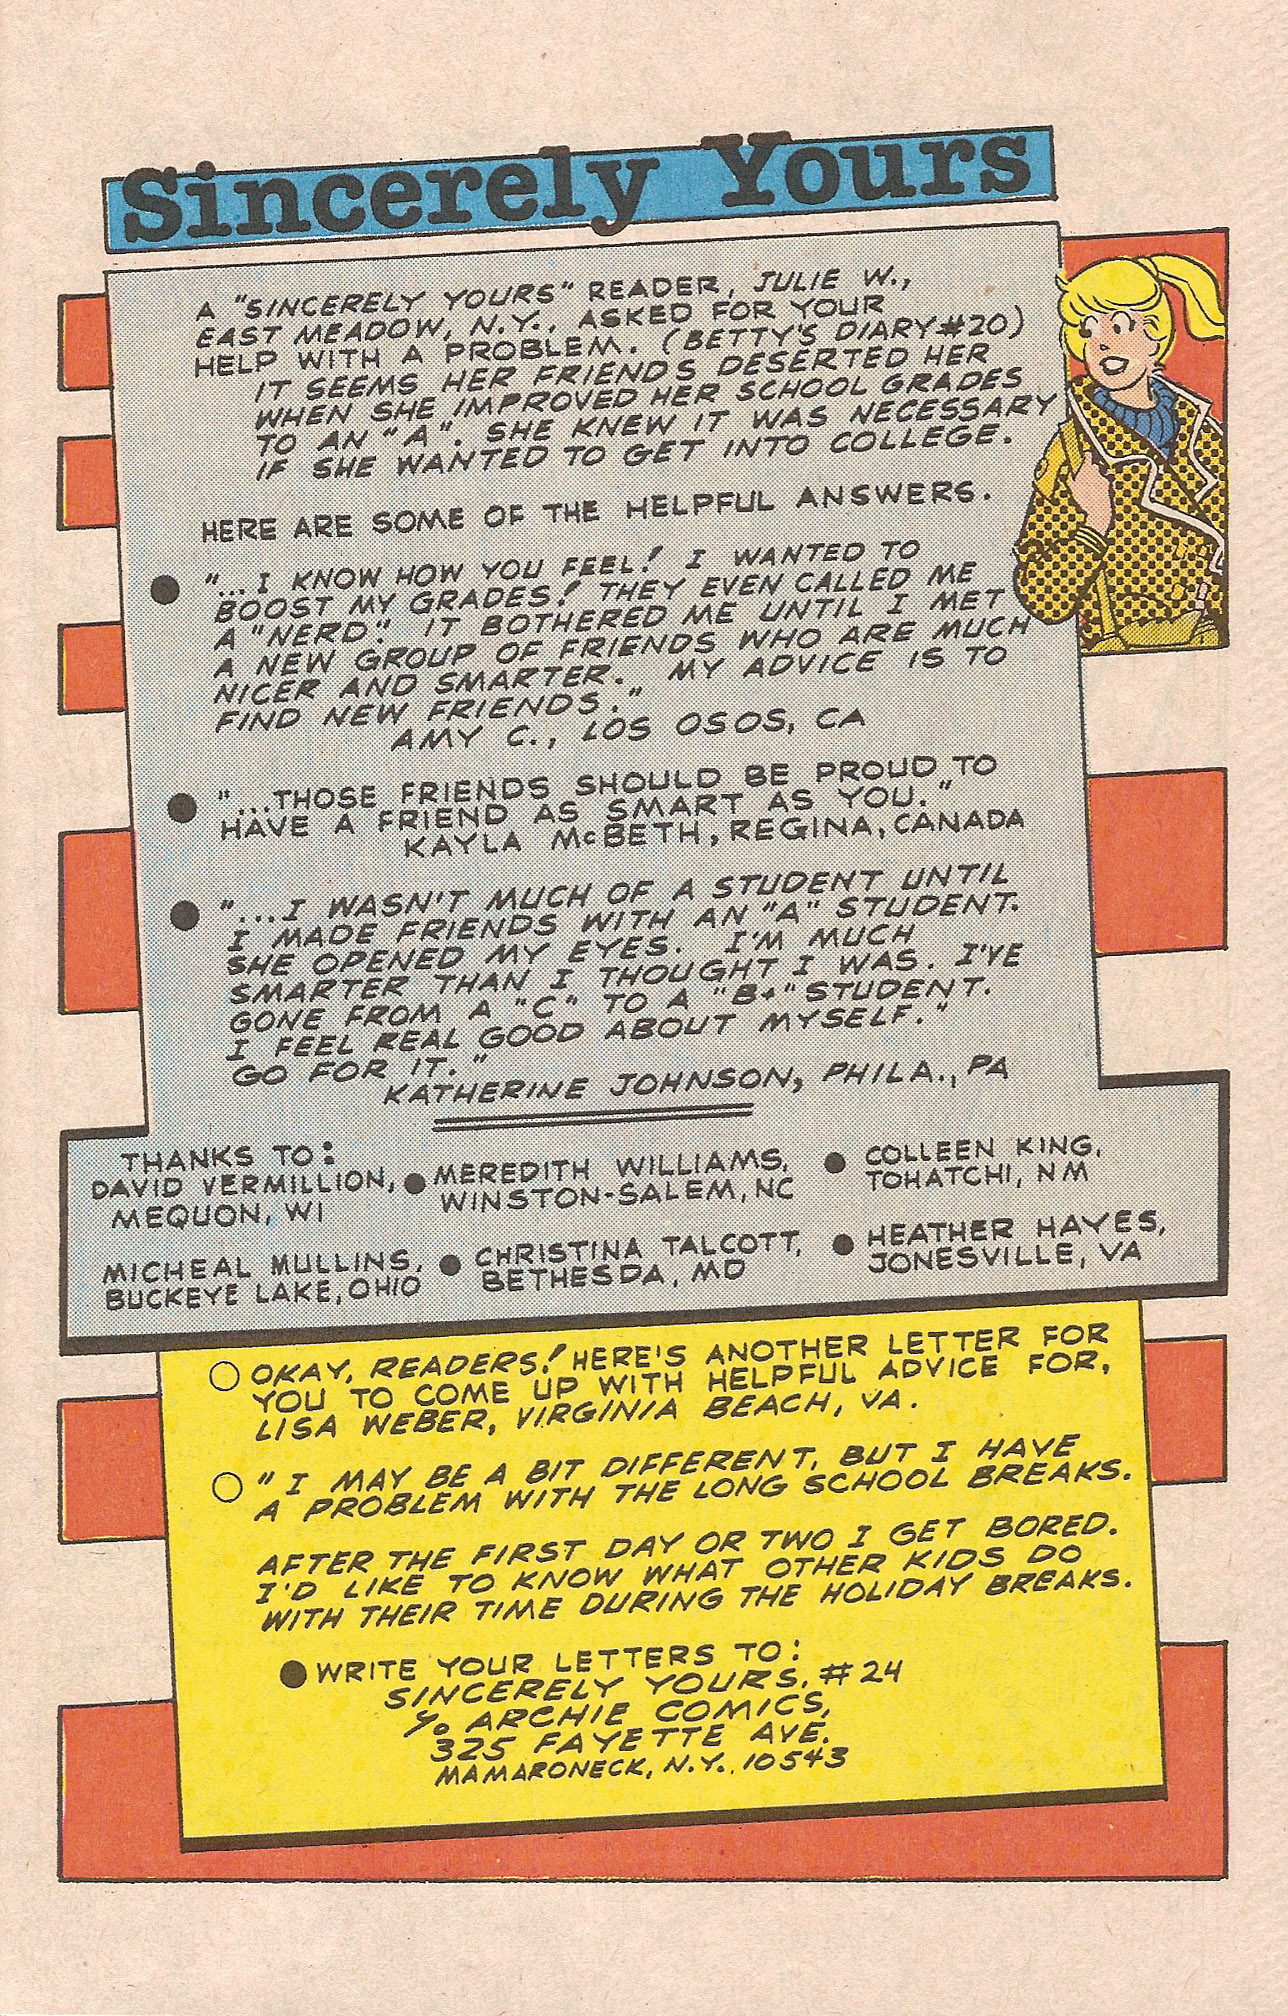 Sincerely Yours
A "SINCERELY YOURS" READER, JULIE W.,
EAST MEADOW, N.Y., ASKED FOR YOUR
HELP WITH A PROBLEM. (BETTY'S DIARY #20)
IT SEEMS HER FRIENDS DESERTED HER
WHEN SHE IMPROVED HER SCHOOL GRADES
TO AN "A". SHE KNEW IT WAS NECESSARY
IF SHE WANTED TO GET INTO COLLEGE.
HERE ARE SOME OF THE HELPFUL ANSWERS.
● "...I KNOW HOW YOU FEEL! I WANTED TO
BOOST MY GRADES! THEY EVEN CALLED ME
A "NERD". IT BOTHERED ME UNTIL I MET
A NEW GROUP OF FRIENDS WHO ARE MUCH
NICER AND SMARTER. MY ADVICE IS TO
FIND NEW FRIENDS."
AMY C., LOS OSOS, CA
● "...THOSE FRIENDS SHOULD BE PROUD TO
HAVE A FRIEND AS SMART AS YOU."
KAYLA McBETH, REGINA, CANADA
● "...I WASN'T MUCH OF A STUDENT UNTIL
I MADE FRIENDS WITH AN "A" STUDENT.
SHE OPENED MY EYES. I'M MUCH
SMARTER THAN I THOUGHT I WAS. I'VE
GONE FROM A "C" TO A "B+" STUDENT.
I FEEL REAL GOOD ABOUT MYSELF."
GO FOR IT."
KATHERINE JOHNSON, PHILA., PA
THANKS TO:
DAVID VERMILLION,
MEQUON, WI
● MEREDITH WILLIAMS,
WINSTON-SALEM, NC
● COLLEEN KING,
TOHATCHI, NM
MICHEAL MULLINS,
BUCKEYE LAKE, OHIO
● CHRISTINA TALCOTT,
BETHESDA, MD
● HEATHER HAYES,
JONESVILLE, VA
○ OKAY, READERS! HERE'S ANOTHER LETTER FOR
YOU TO COME UP WITH HELPFUL ADVICE FOR,
LISA WEBER, VIRGINIA BEACH, VA.
○ "I MAY BE A BIT DIFFERENT, BUT I HAVE
A PROBLEM WITH THE LONG SCHOOL BREAKS.
AFTER THE FIRST DAY OR TWO I GET BORED.
I'D LIKE TO KNOW WHAT OTHER KIDS DO
WITH THEIR TIME DURING THE HOLIDAY BREAKS.
● WRITE YOUR LETTERS TO:
SINCERELY YOURS, #24
c/o ARCHIE COMICS,
325 FAYETTE AVE.
MAMARONECK, N.Y., 10543